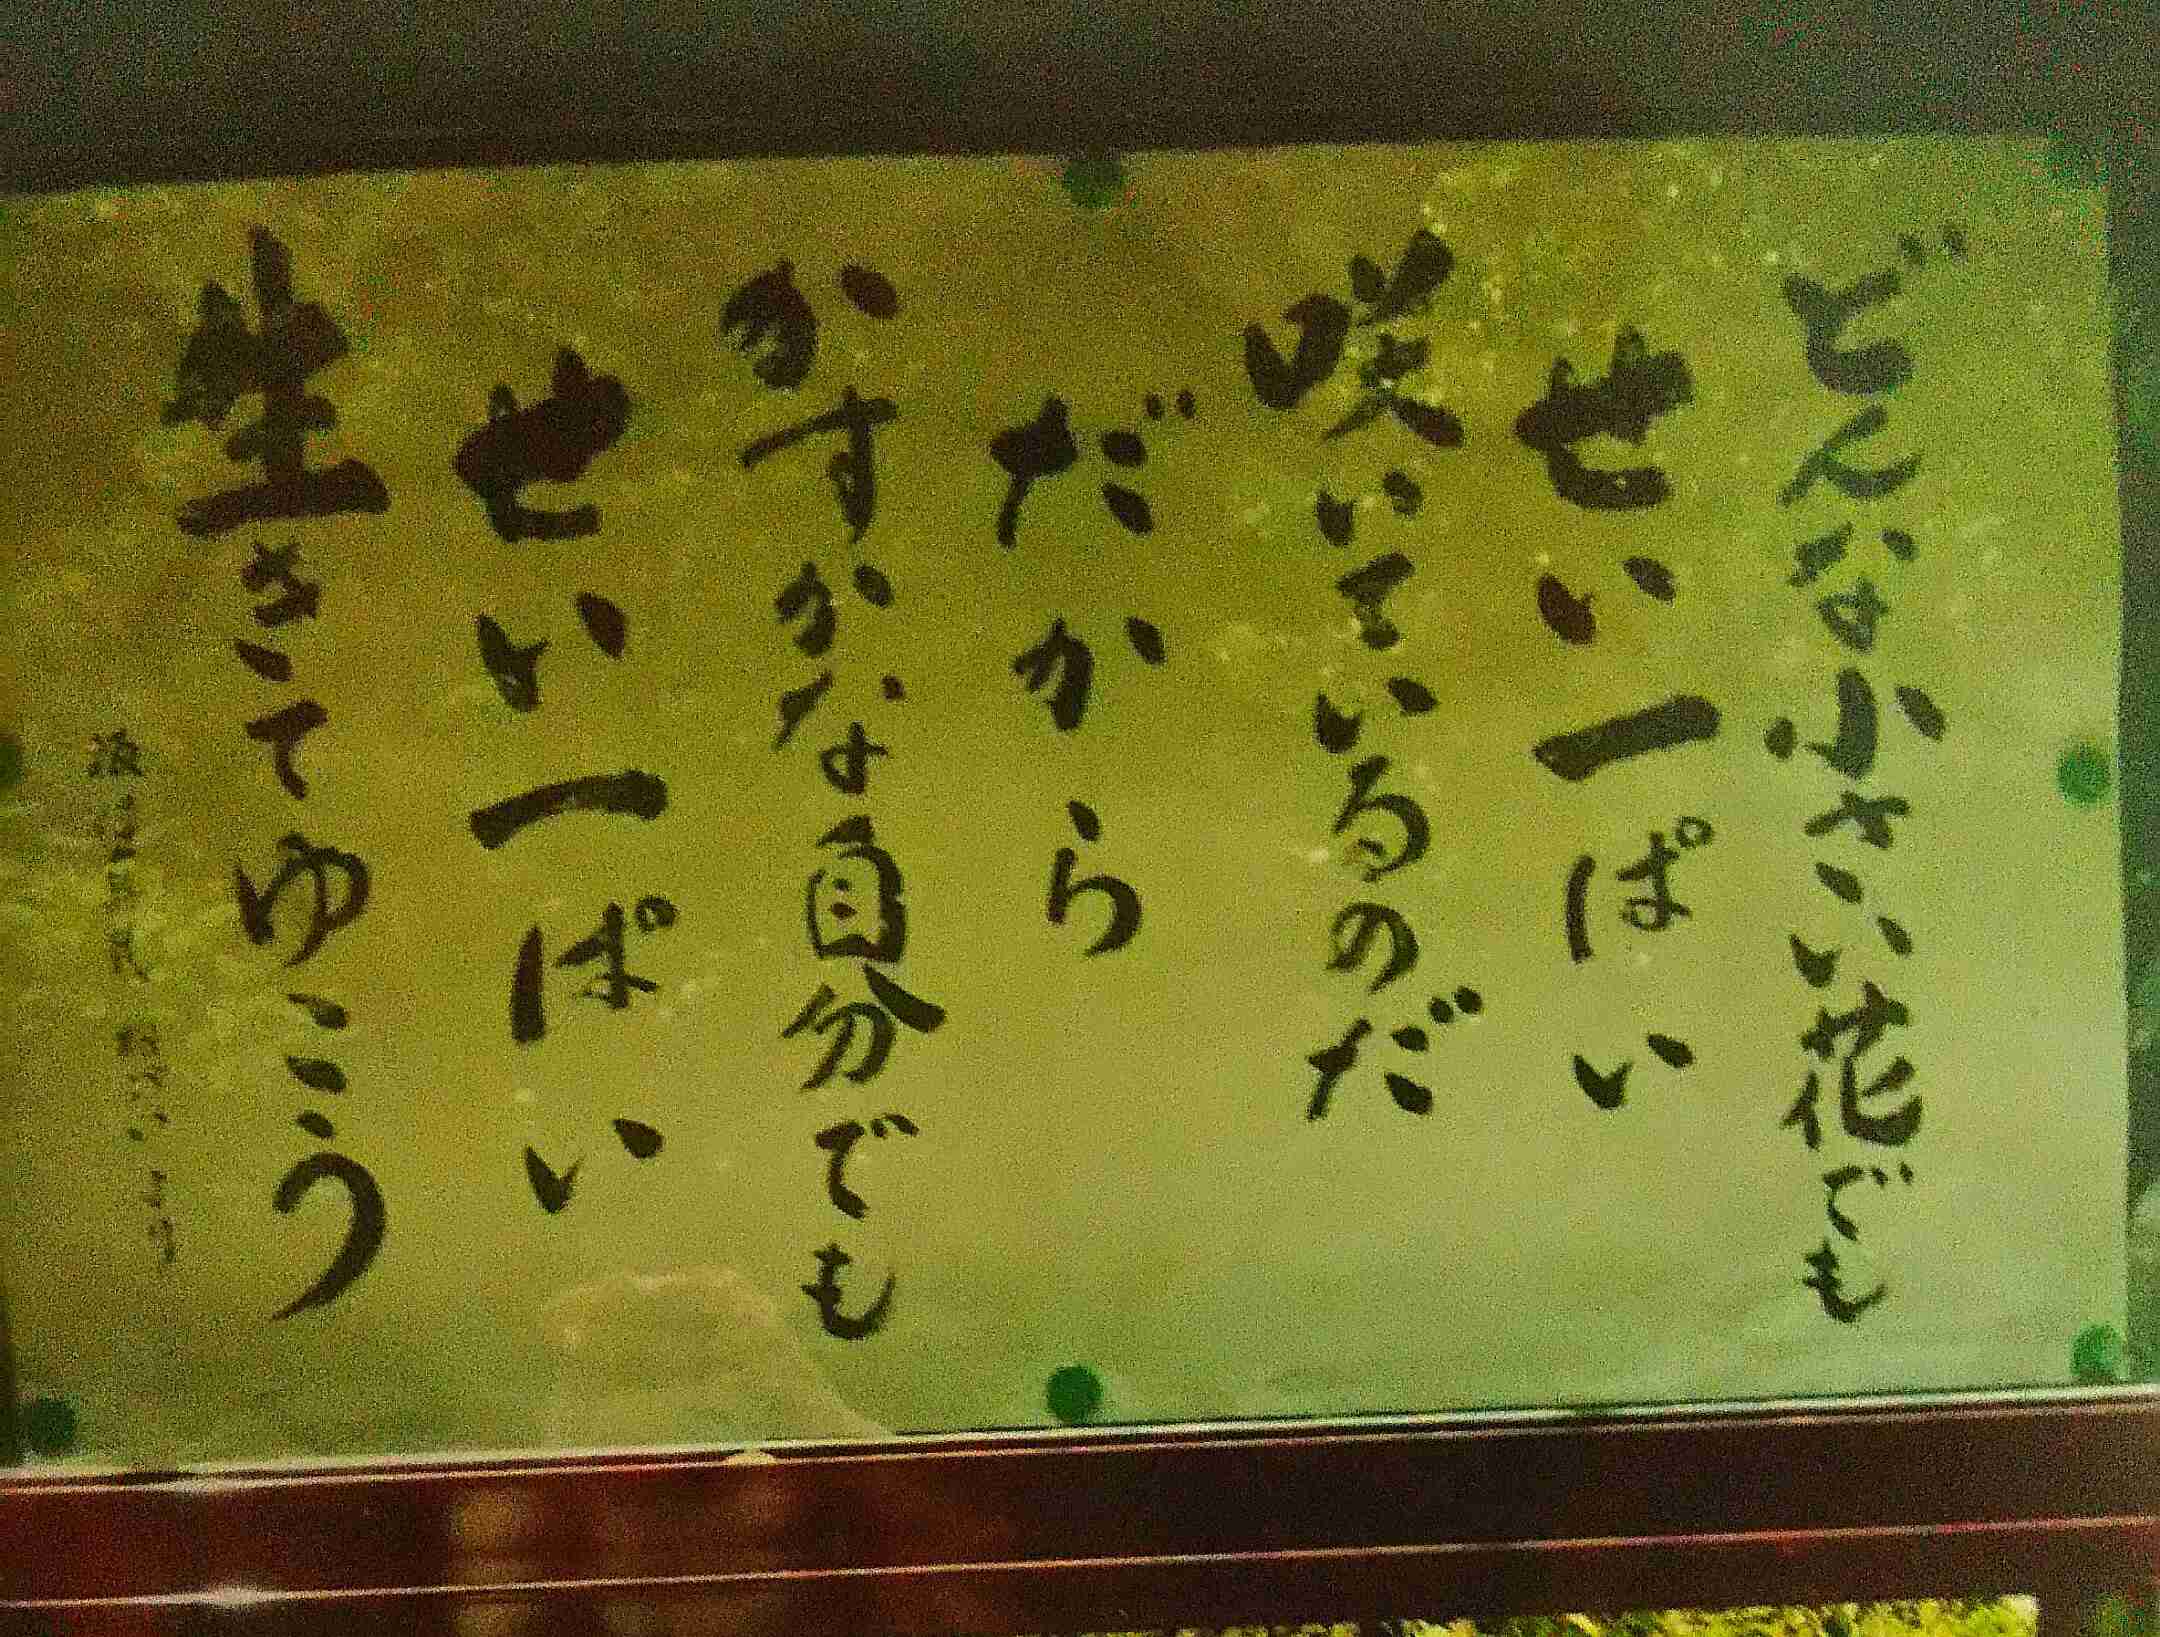 どんな小さい花でも
せい一ぱい
咲いているのだ
だから
かすかな自分でも
せい一ぱい
生きてゆこう